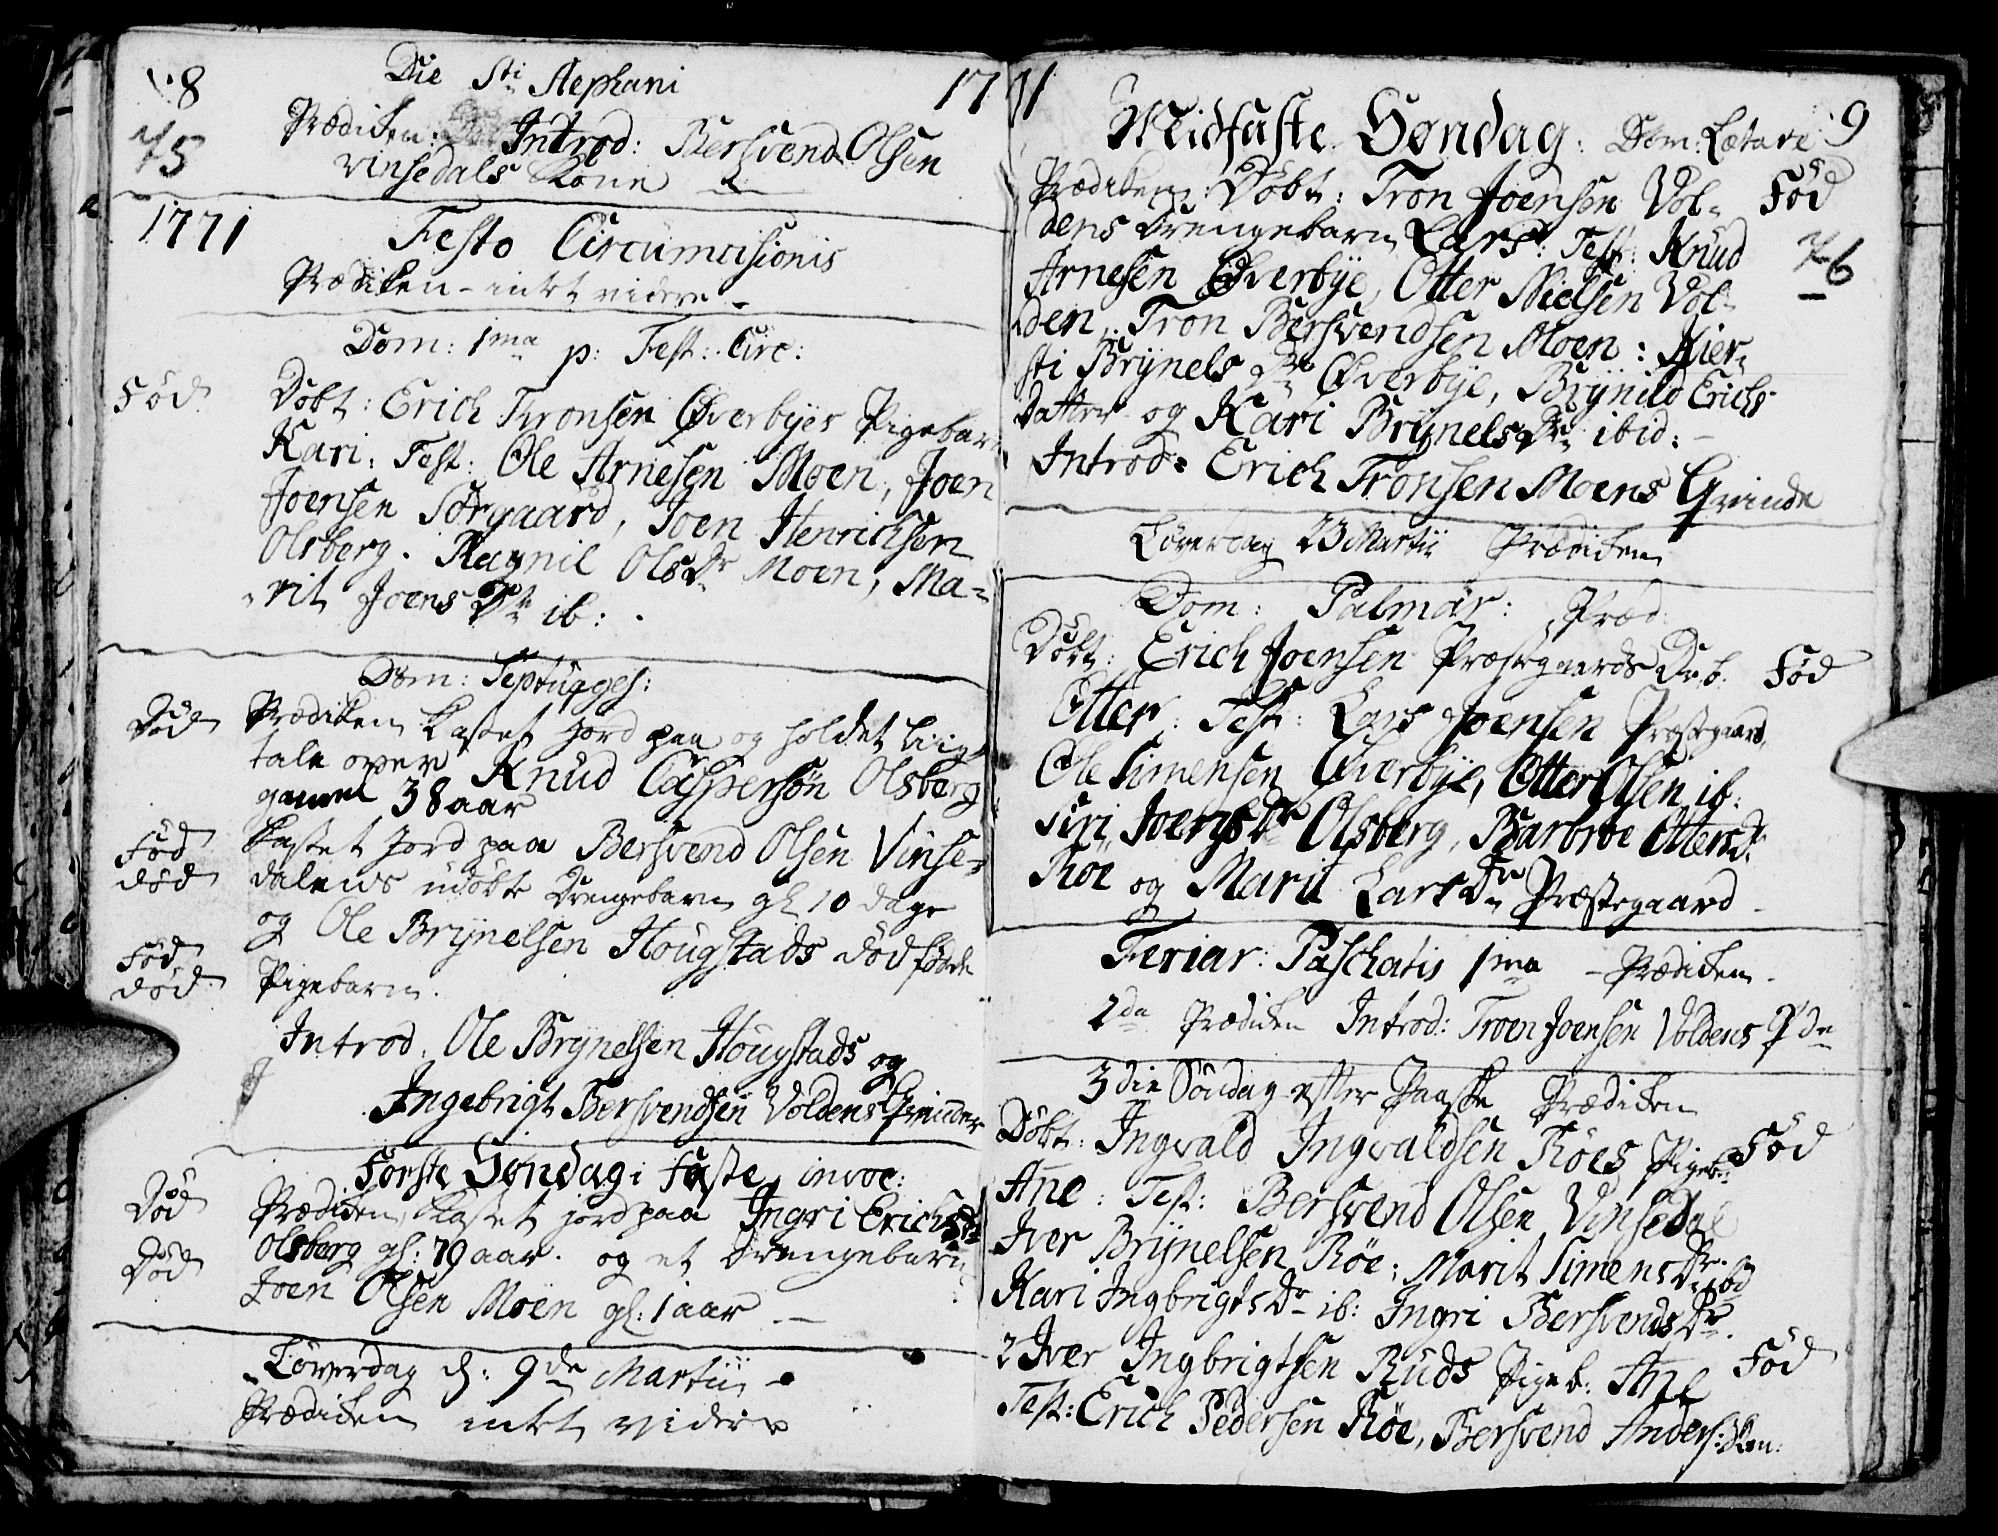 8
Die Sti Stephani
17
75
Prædiken: Introd: Bersvend Olsen
vinsedals Kone
1771
Festo Circumcisionis
Prædiken - intet videre -
Dom: 1ma p: Fest: Circ:
Fød
Døbt: Erich Tronsen Øverbyes Pigebarn
Kari: Test: Ole Arnesen Moen, Joen
Joensen Sørgaard, Joen Henrichsen
Olsberg. Ragnil OlsDr Moen, Ma-
rit JoensDr ib: .
Dom: Septuages:
Død
Prædiken kastet jord paa og holdet Liig
tale over Knud Caspersøn Olsberg
gammel 38 aar
Fød
død
kastet jord paa Bersvend Olsen Vinse-
dalens udøbte Drengebarn gl 10 dage
og Ole Brynelsen Hougstads dødfødde
Fød
død
Pigebarn.
Introd. Ole Brynelsen Hougstads og
Ingebrigt Bersvendsen Voldens Qvinder
Første Søndag i faste invoc:
Død
Prædiken, kastet jord paa Ingri ErichsDr
Død
Olsberg gl: 79 aar. og et Drengebarn
Joen Olsen Moen gl: 1 aar -
Løverdag d: 9de Martii -
Prædiken intet videre
71
9
Midfaste Søndag: Dom: Lætare
Prædiken: Døbt: Tron Joensen Vol-
Fød
dens Drengebarn Lars: Test: Knud
76
Arnesen Øverbye, Otter Nielsen Vol-
den, Tron Bersvendsen Moen: Kier-
sti BrynelsDr Øverbye, Brynild Erichs
Datter og Kari BrynelsDr ibid: -
Introd: Erich Tronsen Moens Qvinde
Løverdag 23 Martii Prædiken
Dom: Palmar: Præd
Døbt: Erich Joensen Præstegaards Dr.b.
Fød
Otter: Test: Lars Joensen Præstegaard,
Ole Simensen Øverbye, Otter Olsen ib:
Siri JoensDr Olsberg, Barbroe OttersDr
Roe og Marit LarsDr Præstegaard -
Feriar: Paschatis 1ma - Prædiken -
2da Prædiken Introd: Troen Joensen Voldens Qde
3die Søndag efter Paaske Prædiken
Døbt: Ingvald Ingvaldsen Røes Pigeb:
Fød
Ane: Test: Bersvend Olsen Vinsedal
Iver Brynelsen Røe; Marit SimensDr ibd
Kari IngbrigtsDr ib: Ingri BersvendsDr.
2 Iver Ingbrigtsen Ruds Pigeb: Ane
Fød
Test: Erich Pedersen Røe, Bersvend Anders: